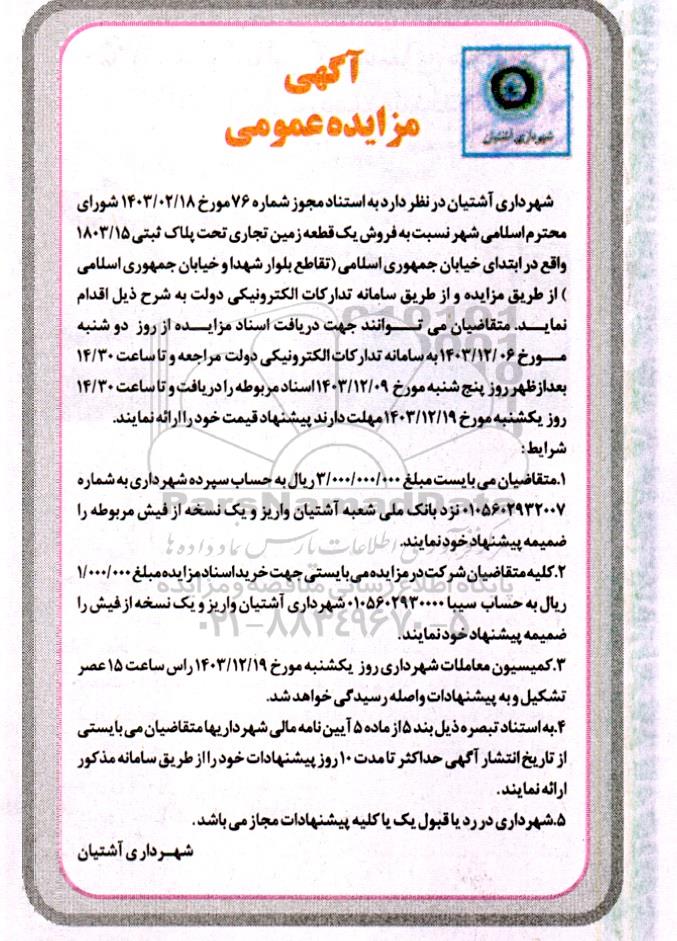 آگهی
مزایده عمومی
شهرداری آشتیان
شهرداری آشتیان در نظر دارد به استناد مجوز شماره ۷۶ مورخ ۱۴۰۳/۰۲/۱۸ شورای
محترم اسلامی شهر نسبت به فروش یک قطعه زمین تجاری تحت پلاک ثبتی ۱۸۰۳/۱۵
واقع در ابتدای خیابان جمهوری اسلامی (تقاطع بلوار شهدا و خیابان جمهوری اسلامی
) از طریق مزایده و از طریق سامانه تدارکات الکترونیکی دولت به شرح ذیل اقدام
نمایـــد. متقاضیان می تـــوانند جهت دریافت اسناد مزایـــده از روز دو شنبه
مـــورخ ۱۴۰۳/۱۲/۰۶ به سامانه تدارکات الکترونیکی دولت مراجعه و تا ساعت ۱۴/۳۰
بعدازظهر روز پنج شنبه مورخ ۱۴۰۳/۱۲/۰۹ اسناد مربوطه را دریافت و تا ساعت ۱۴/۳۰
روز یکشنبه مورخ ۱۴۰۳/۱۲/۱۹ مهلت دارند پیشنهاد قیمت خود را ارائه نمایند.
شرایط:
۱.متقاضیان می بایست مبلغ ۳/۰۰۰/۰۰۰/۰۰۰ ریال به حساب سپرده شهرداری به شماره
۰۱۰۵۶۰۲۹۳۲۰۰۷ نزد بانک ملی شعبه آشتیان واریز و یک نسخه از فیش مربوطه را
ضمیمه پیشنهاد خود نمایند.
۲.کلیه متقاضیان شرکت در مزایده می بایستی جهت خرید اسناد مزایده مبلغ ۱/۰۰۰/۰۰۰
ریال به حساب سیبا ۰۱۰۵۶۰۲۹۳۰۰۰۰ شهرداری آشتیان واریز و یک نسخه از فیش را
ضمیمه پیشنهاد خود نمایند.
۳.کمیسیون معاملات شهرداری روز یکشنبه مورخ ۱۴۰۳/۱۲/۱۹ راس ساعت ۱۵ عصر
تشکیل و به پیشنهادات واصله رسیدگی خواهد شد.
۴.به استناد تبصره ذیل بند ۵ از ماده ۵ آیین نامه مالی شهرداریها متقاضیان می بایستی
از تاریخ انتشار آگهی حداکثر تا مدت ۱۰ روز پیشنهادات خود را از طریق سامانه مذکور
ارائه نمایند.
۵.شهرداری در رد یا قبول یک یا کلیه پیشنهادات مجاز می باشد.
شهـرداری آشتیان
ParsNamadData
پایگاه اطلاع رسانی مناقصه و مزایده
۰۲۱-۸۸۳۴۹۶۷۰-۵